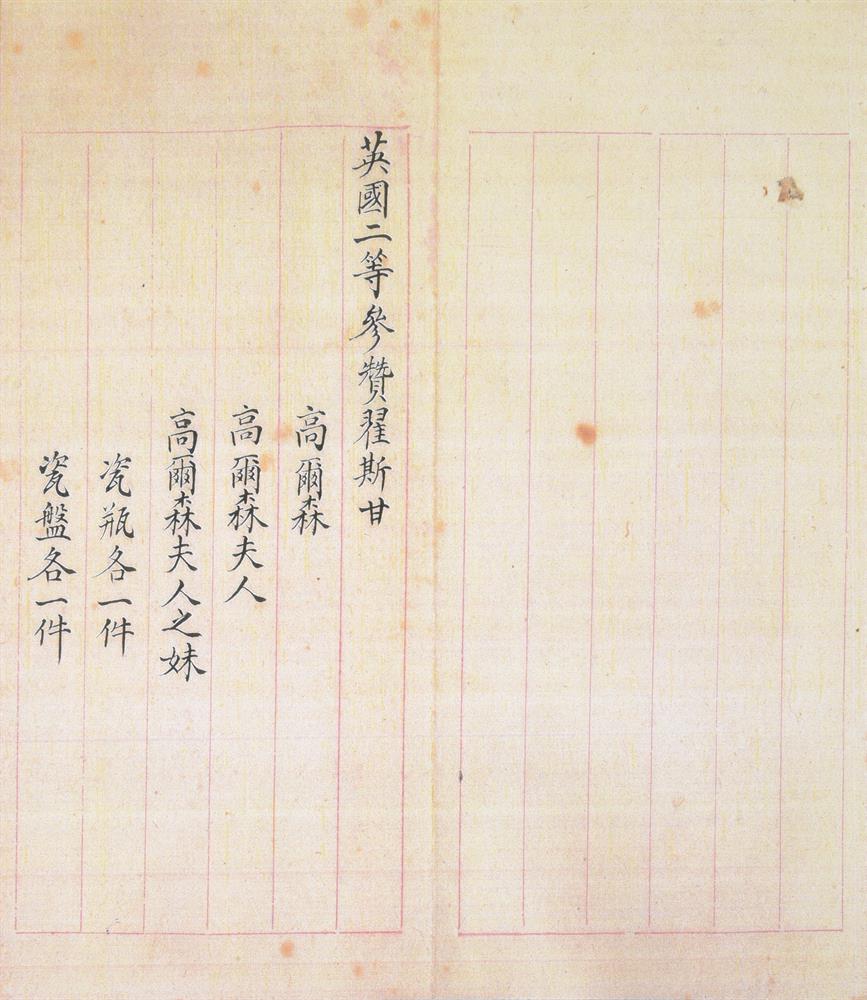 英國二等參贊翟斯甘
高爾森
高爾森夫人
高爾森夫人之妹
瓷瓶各一件
瓷盤各一件